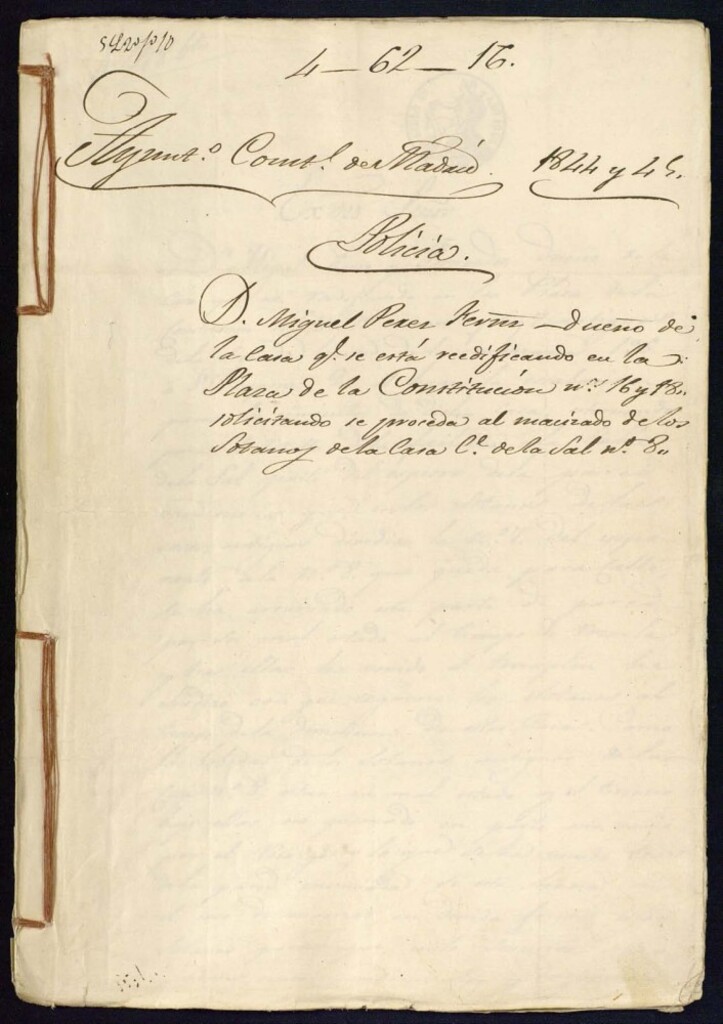 4 - 62 - 16.
Ayunt.º Const.l de Madrid. 1844 y 45.
Policia.
D. Miguel Perez Fernz dueño de
la Casa q.e se está reedificando en la
Plaza de la Constitución n.os 16 y 18
solicitando se proceda al macizado de los
Sotanos de la Casa C.e de la Sal n.º 8